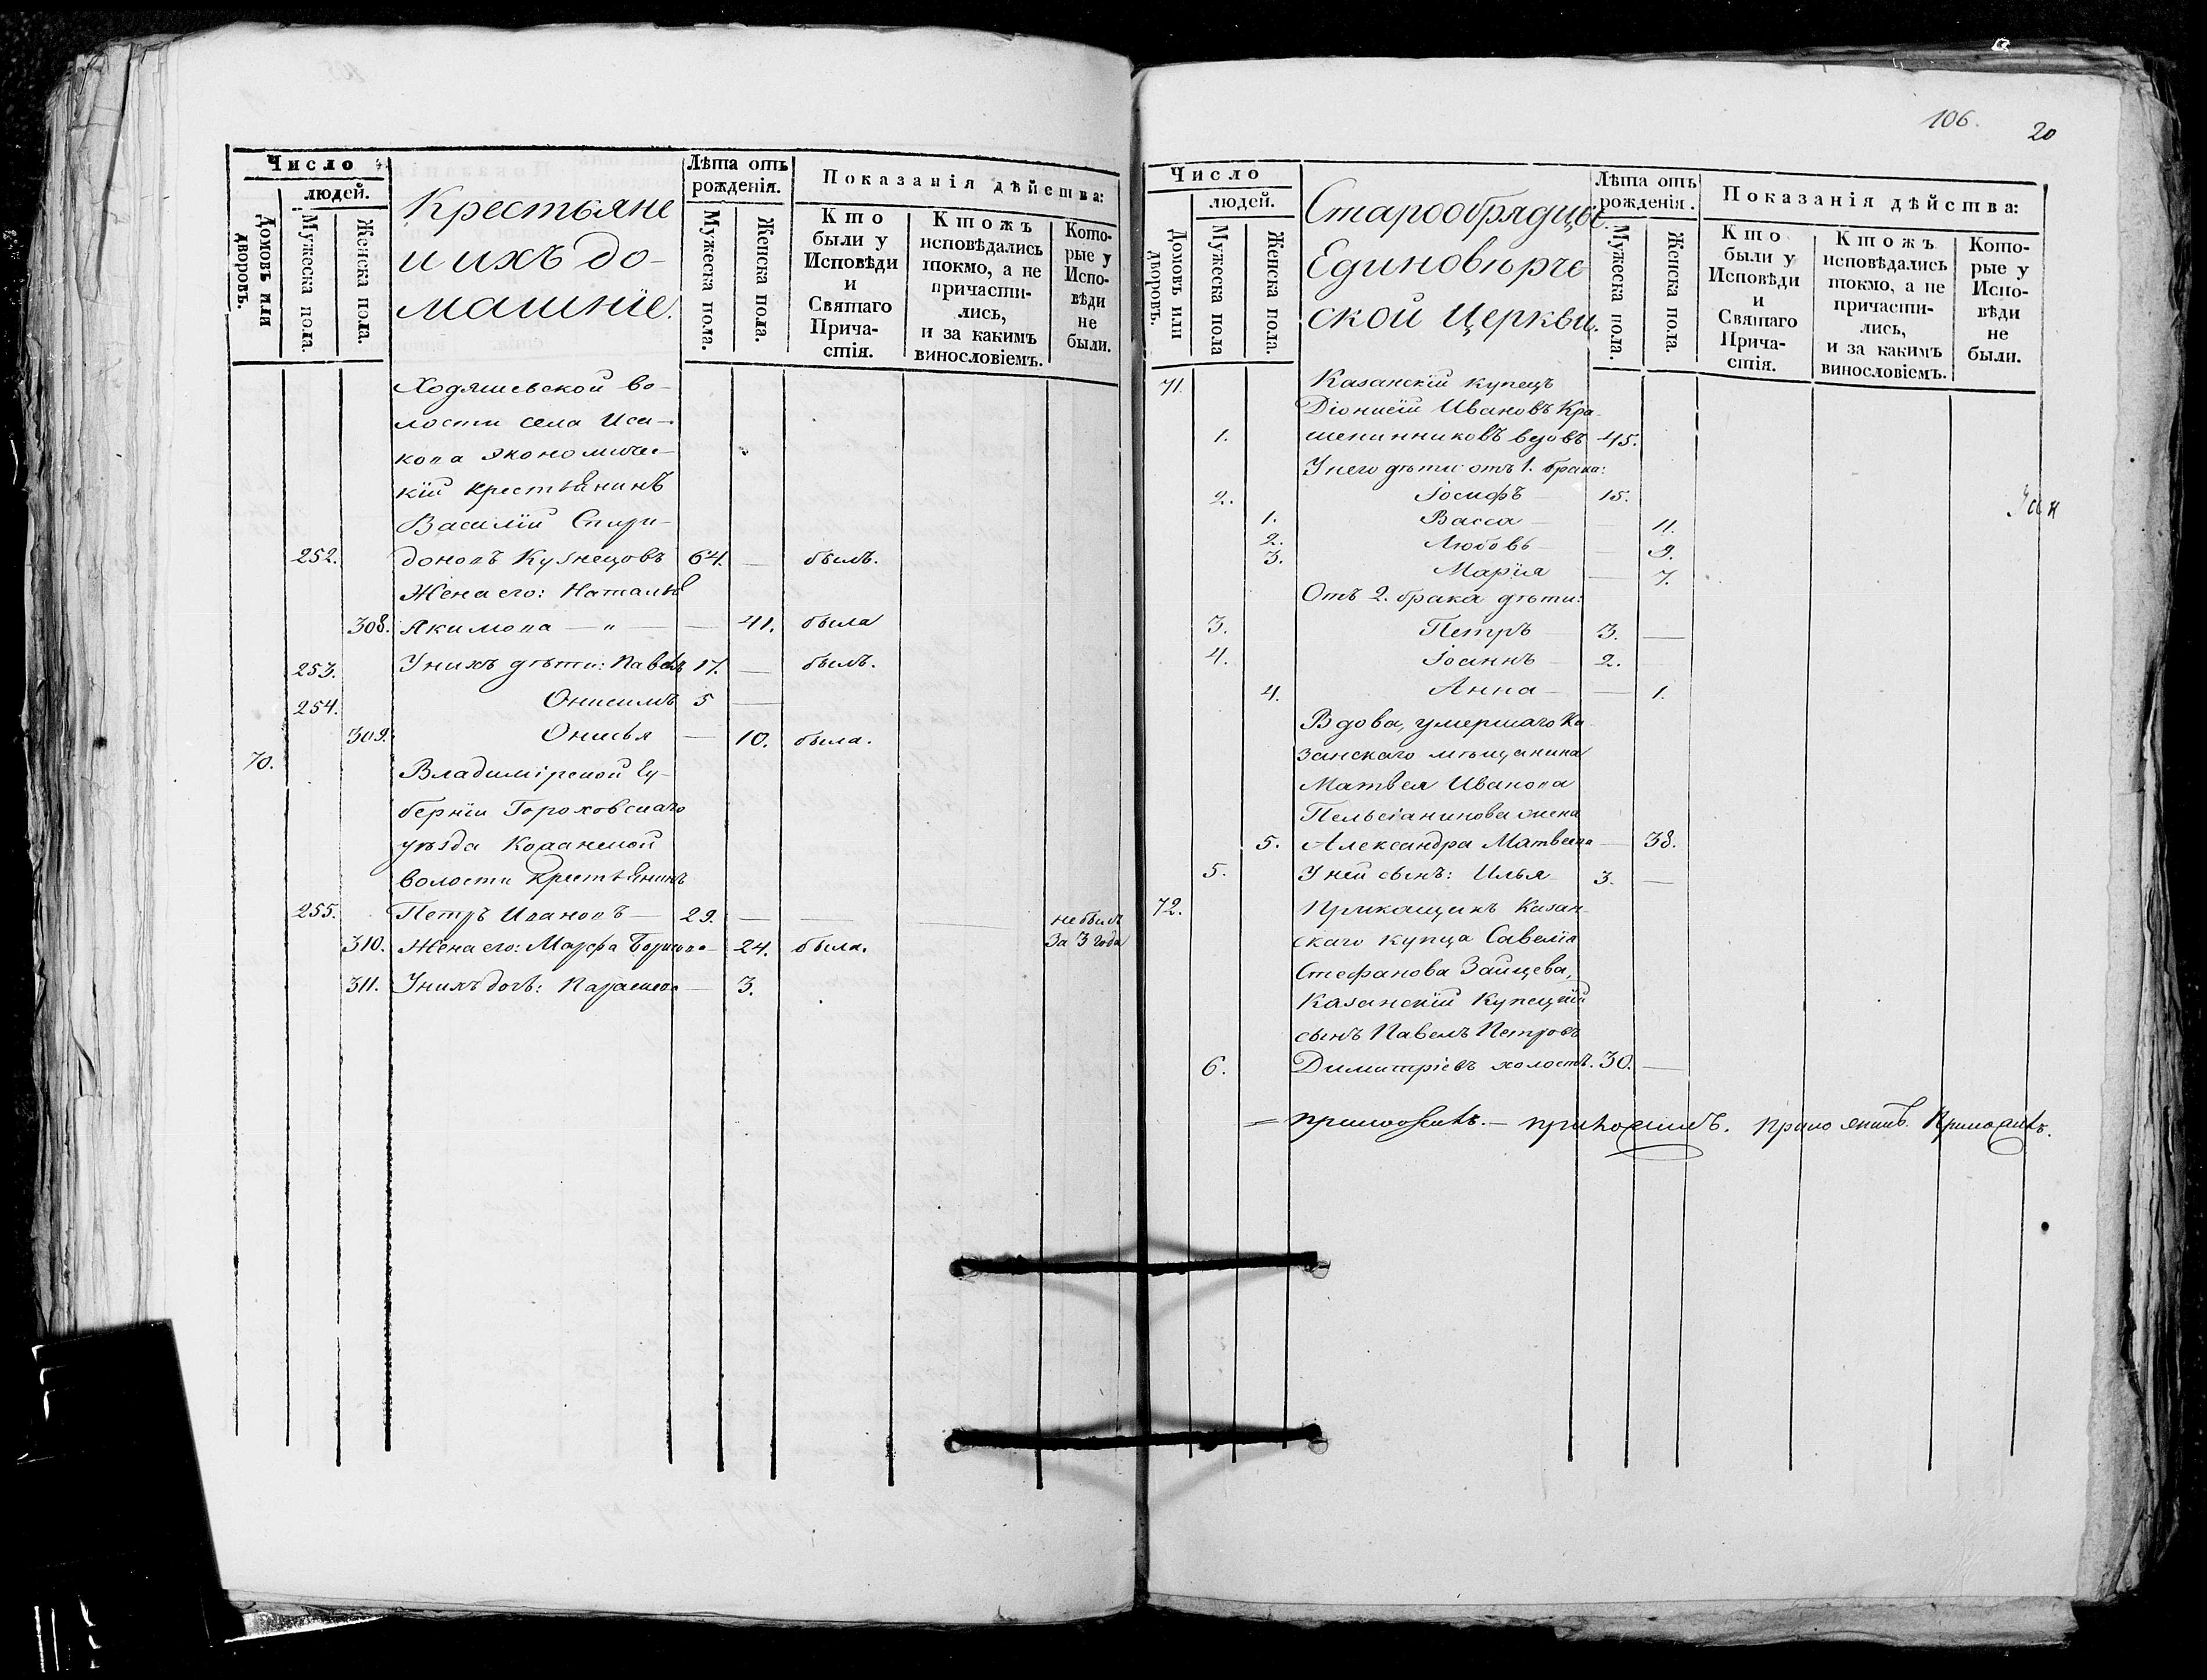 Число
людей.
Домовъ или дворовъ.
Мужеска пола.
Женска пола.
Крестьяне
и ихъ до-
машніе.
Лѣта отъ рожденія.
Мужеска пола.
Женска пола.
Показанія дѣйства:
Кто были у Исповѣди и Святаго Прича-стія.
Ктожъ исповѣдались токмо, а не причасти-лись, и за какимъ винословіемъ.
Кото-рые у Испо-вѣди не были.
Ходяшевской во-
лости села Иса-
кова экономичес-
кій крестьянинъ
Василій Спири-
252. доновъ Кузнецовъ 64. — былъ.
Жена его: Наталья
308. Якимова — „ — 41. была
253. У нихъ дѣти: Павелъ 17. — былъ.
254. Онисимъ 5 —
309. Онисья — 10. была.
70. Владимірской Гу-
берніи Гороховскаго
уѣзда
волости крестьянинъ
255. Петръ Ивановъ — 29. — — — не былъ
310. Жена его: Марфа — 24. была. за 3 года
311. У нихъ дочь: — 3.
106. 20
Число
людей.
Домовъ или дворовъ.
Мужеска пола
Женска пола.
Старообрядцы
Единовѣрче
ской Церкви.
Лѣта отъ рожденія.
Мужеска пола.
Женска пола.
Показанія дѣйства:
Кто были у Исповѣди и Святаго Прича-стія.
Ктожъ исповѣдались токмо, а не причасти-лись, и за какимъ винословіемъ.
Кото-рые у Испо-вѣди не были.
71. Казанскій купецъ
Діонисій Ивановъ Кра-
1. шенинниковъ вдовъ 45.
У него дѣти отъ 1. брака:
2. Іосифъ — 15.
1. Васса — — 11.
2. Любовь — — 9.
3. Марія — 7.
Отъ 2. брака дѣти:
3. Петръ — 3. —
4. Іоаннъ — 2.
4. Анна — — 1.
Вдова, умершаго Ка-
занскаго мѣщанина
Матвея Иванова
жена
5. Александра Матвеева — 38.
5. У ней сынъ: Илья — 3. —
72. Прикащикъ Казан-
скаго купца Савелія
Стефанова Зайцева,
Казанскій Купецкій
сынъ Павелъ Петровъ
6. Димитріевъ холостъ. 30. —